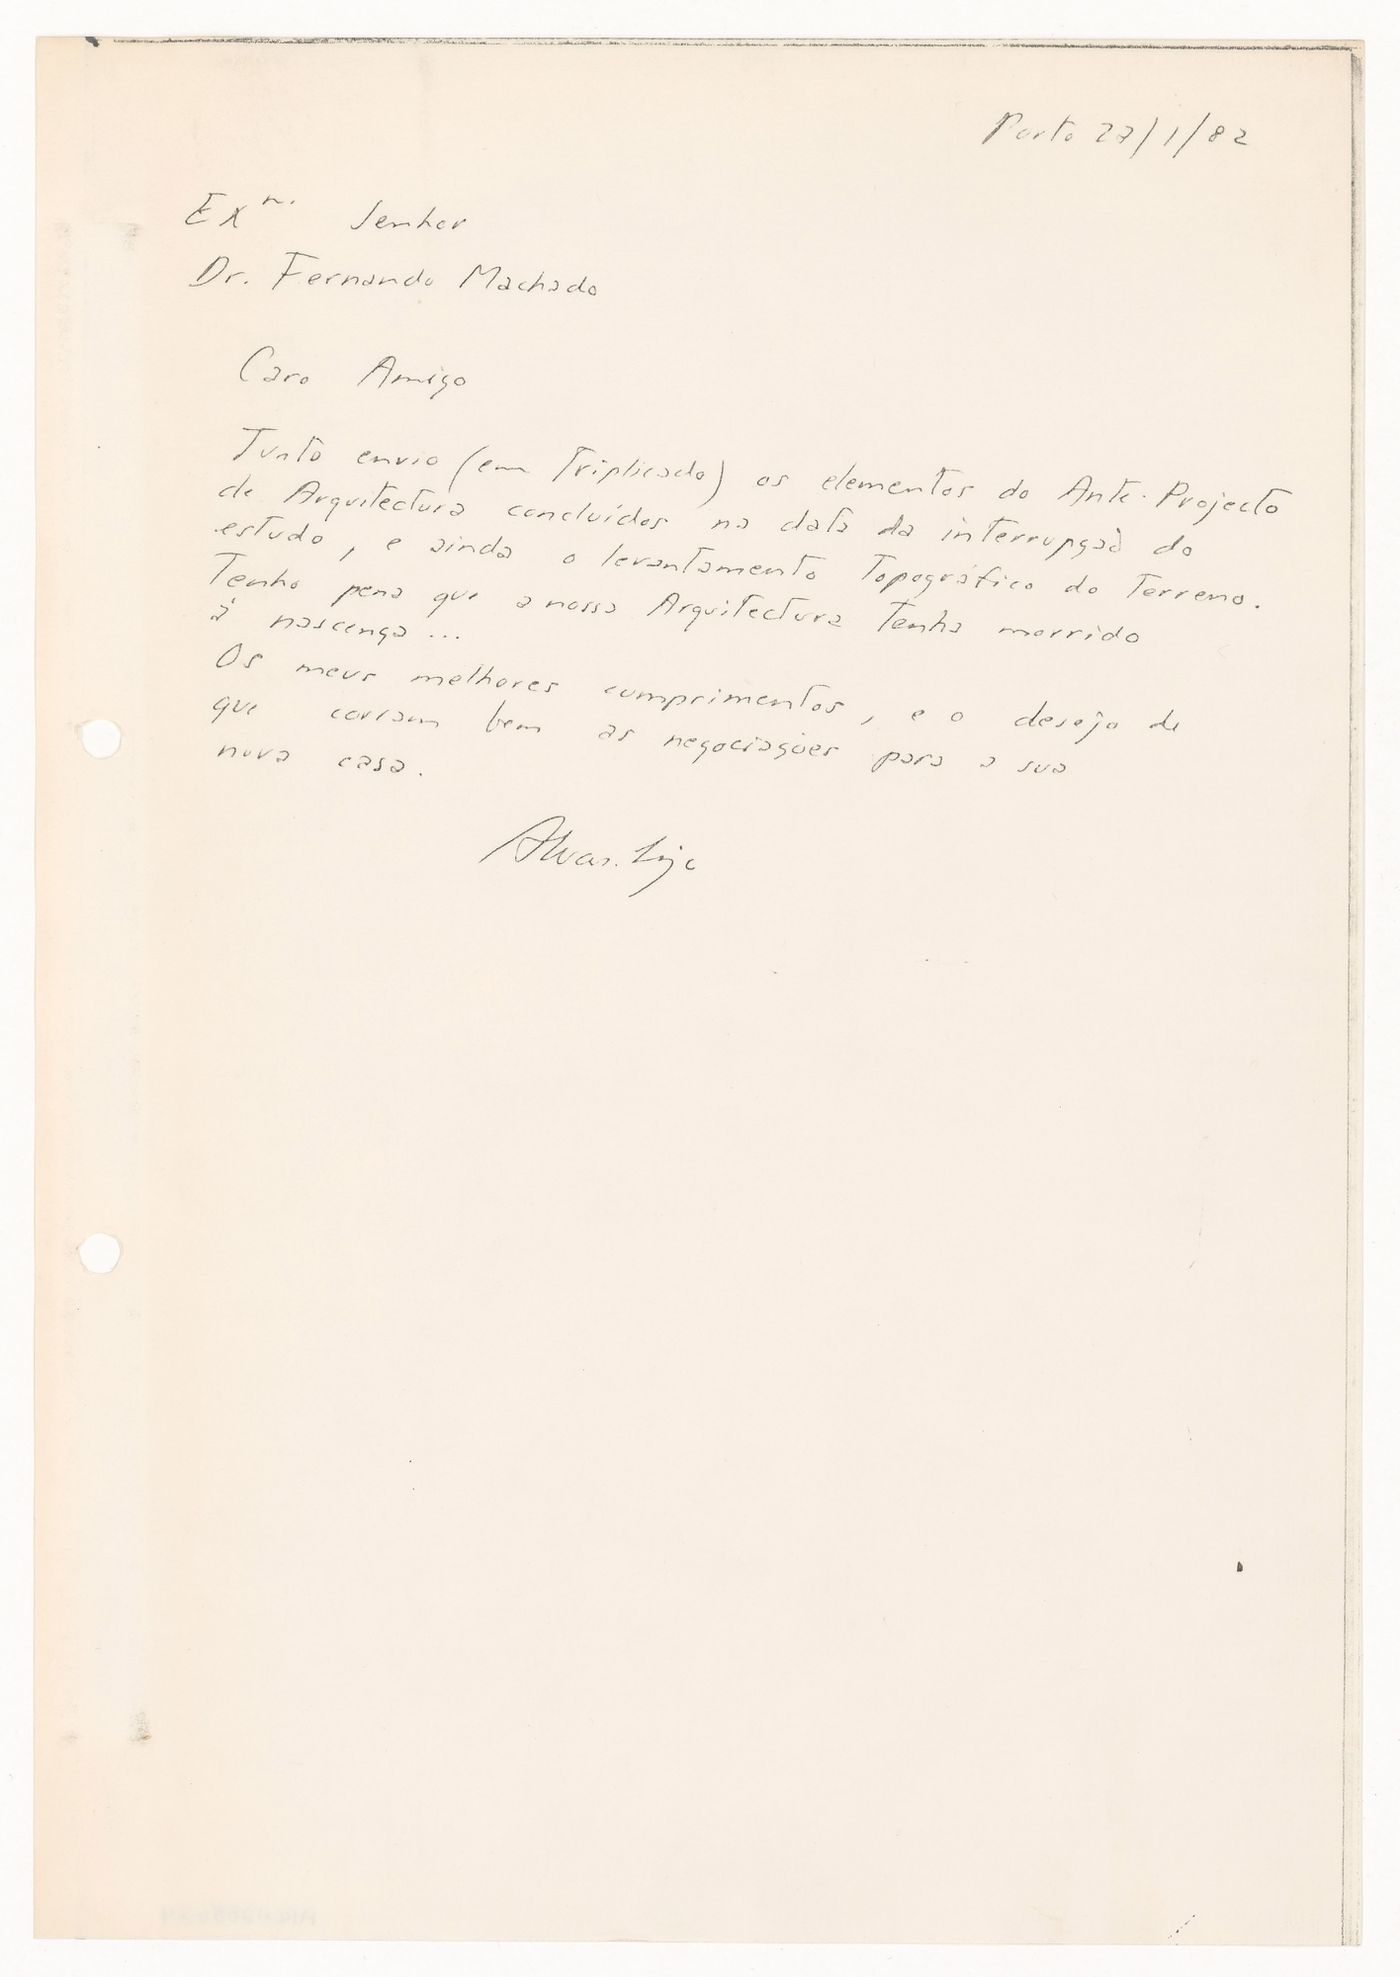 Porto 22/1/82
Exmº. Senhor
Dr. Fernando Machado
Caro Amigo
Junto envio (em triplicado) os elementos do Ante-Projecto
de Arquitectura concluídos na data da interrupção do
estudo, e ainda o levantamento topográfico do terreno.
Tenho pena que a nossa Arquitectura tenha morrido
à nascença...
Os meus melhores cumprimentos, e o desejo de
que corram bem as negociações para a sua
nova casa.
Alvaro Siza